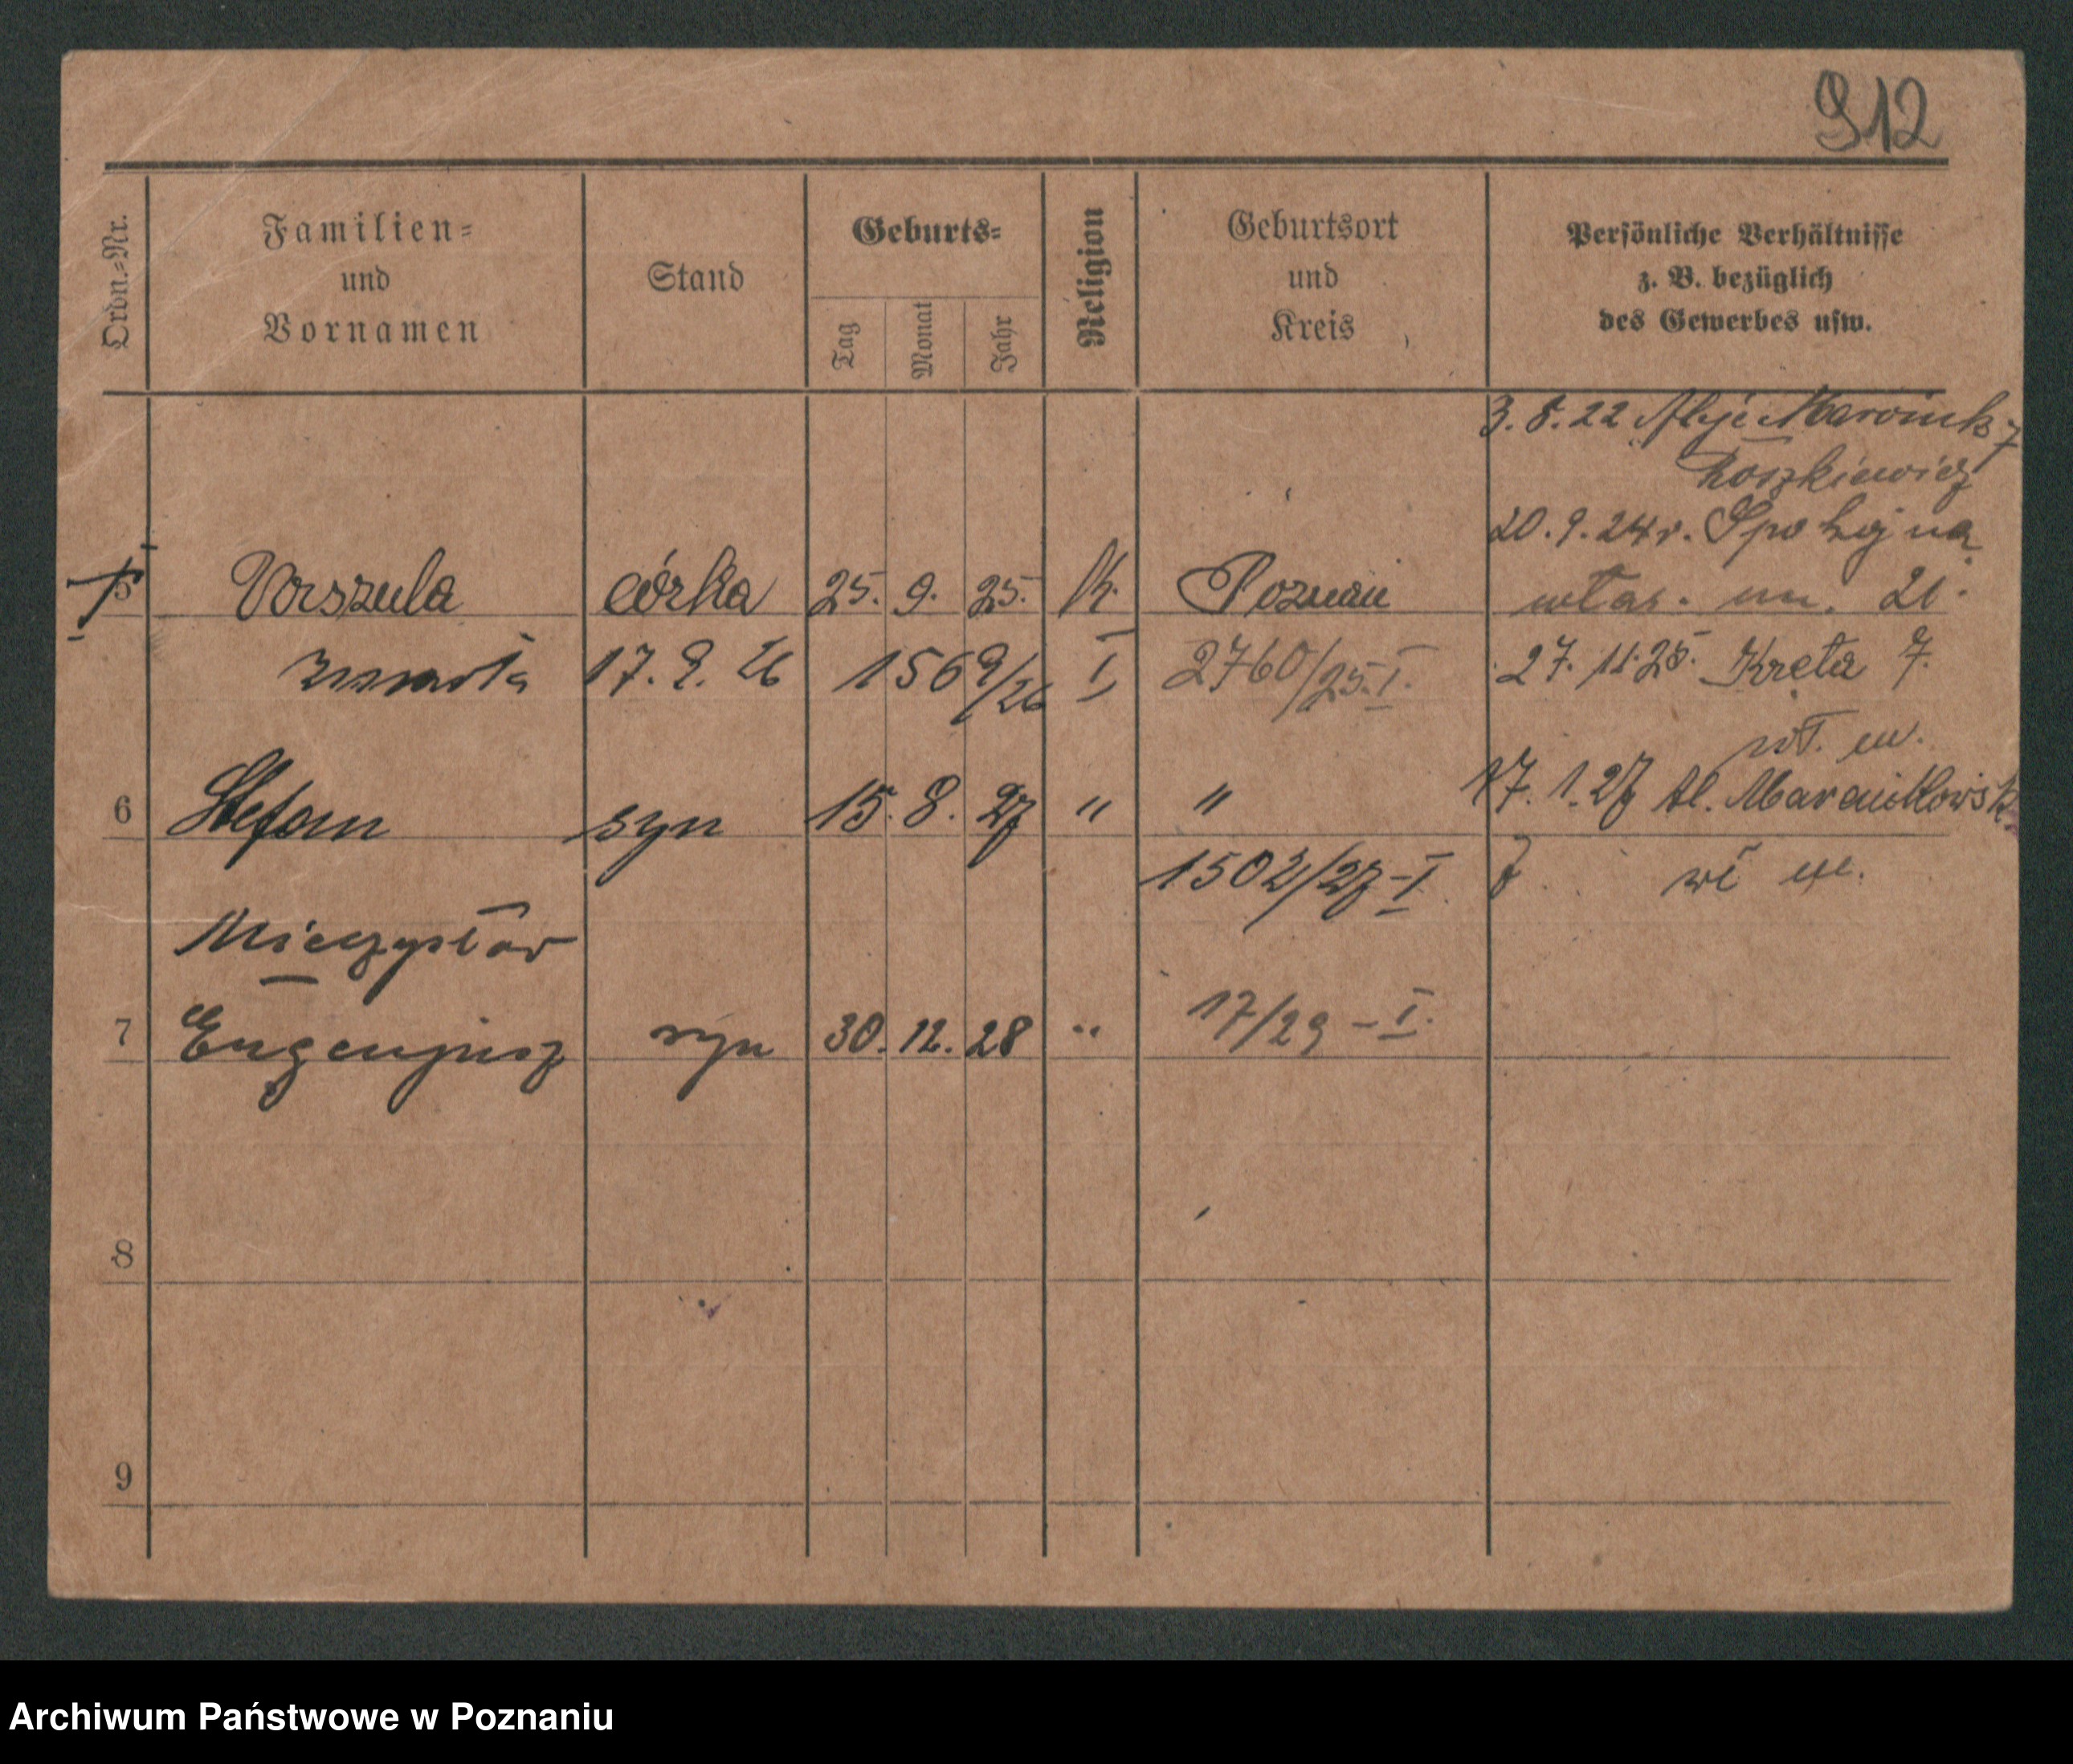 912
Ordn.=Nr.
Familien=
und
Vornamen
Stand
Geburts=
Tag
Monat
Jahr
Religion
Geburtsort
und
Kreis
Persönliche Verhältnisse
z. B. bezüglich
des Gewerbes usw.
3. 8. 22
20. 9. 24 r. Spokojna
5 Urszula córka 25. 9. 25. K. Poznań włas. m. 21.
zmarła 17. 9. 26 1569/26 I 2760/25. I. 27. 11. 25. Kreta 7.
wł. m.
6 Stefan syn 15. 8. 27 " " 17. 1. 27 Al. Marcinkowsk.
1502/27 - I 7 wł m.
Mieczysław
7 Eugenjusz syn 30. 12. 28 " 17/29 - I.
8
9
Archiwum Państwowe w Poznaniu